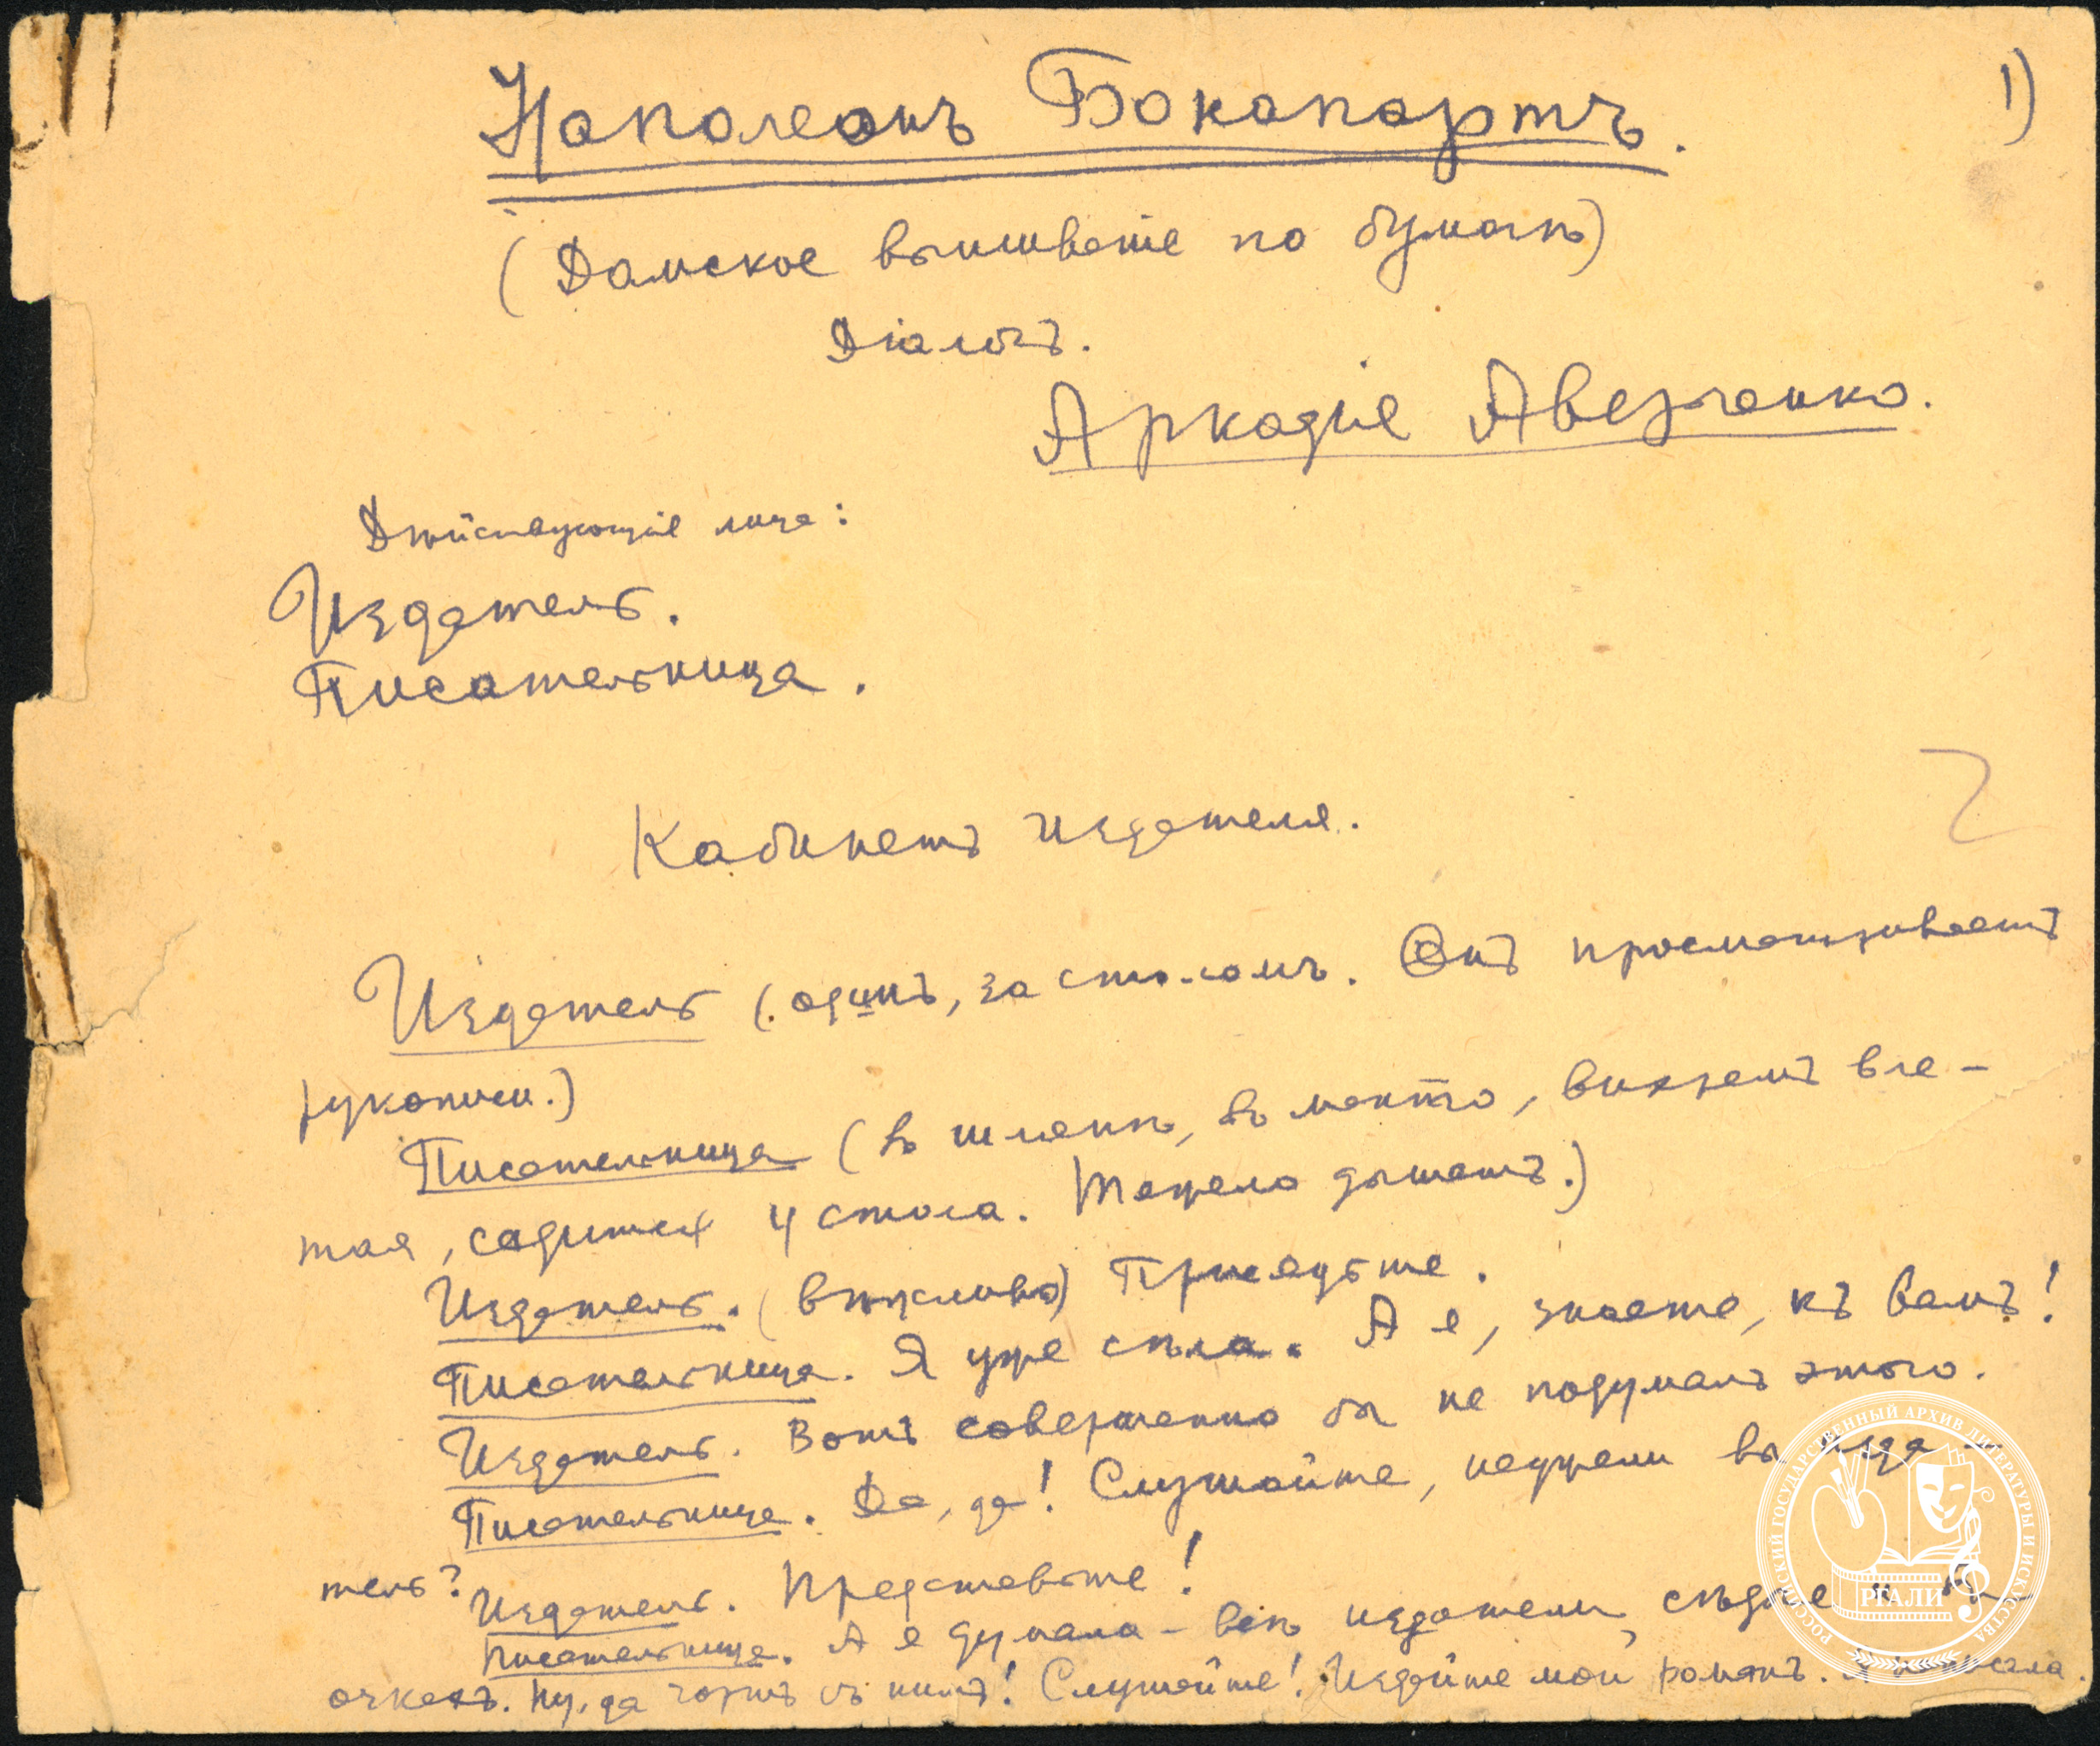 1)
Наполеонъ Бонапартъ.
(Дамское вышиванiе по бумагѣ)
Дiалогъ.
Аркадiй Аверченко.
Дѣйствующiя лица:
Издатель.
Писательница.
Кабинетъ издателя.
Издатель (одинъ, за столомъ. Онъ просматриваетъ
рукописи.)
Писательница (въ шляпѣ, въ манто, вихремъ вле-
тая, садится у стола. Тяжело дышетъ.)
Издатель. (вѣжливо) Присядьте.
Писательница. Я уже сѣла. А я, знаете, къ вамъ!
Издатель. Вотъ совершенно бы не подумалъ этого.
Писательница. Да, да! Слушайте, неужели вы изда-
тель?
Издатель. Представьте!
Писательница. А я думала – всѣ издатели, сѣдые и въ
очкахъ. Ну, да чортъ съ нимъ! Слушайте! Издайте мой романъ. Я написала.
РОССИЙСКИЙ ГОСУДАРСТВЕННЫЙ АРХИВ ЛИТЕРАТУРЫ И ИСКУССТВА
РГАЛИ